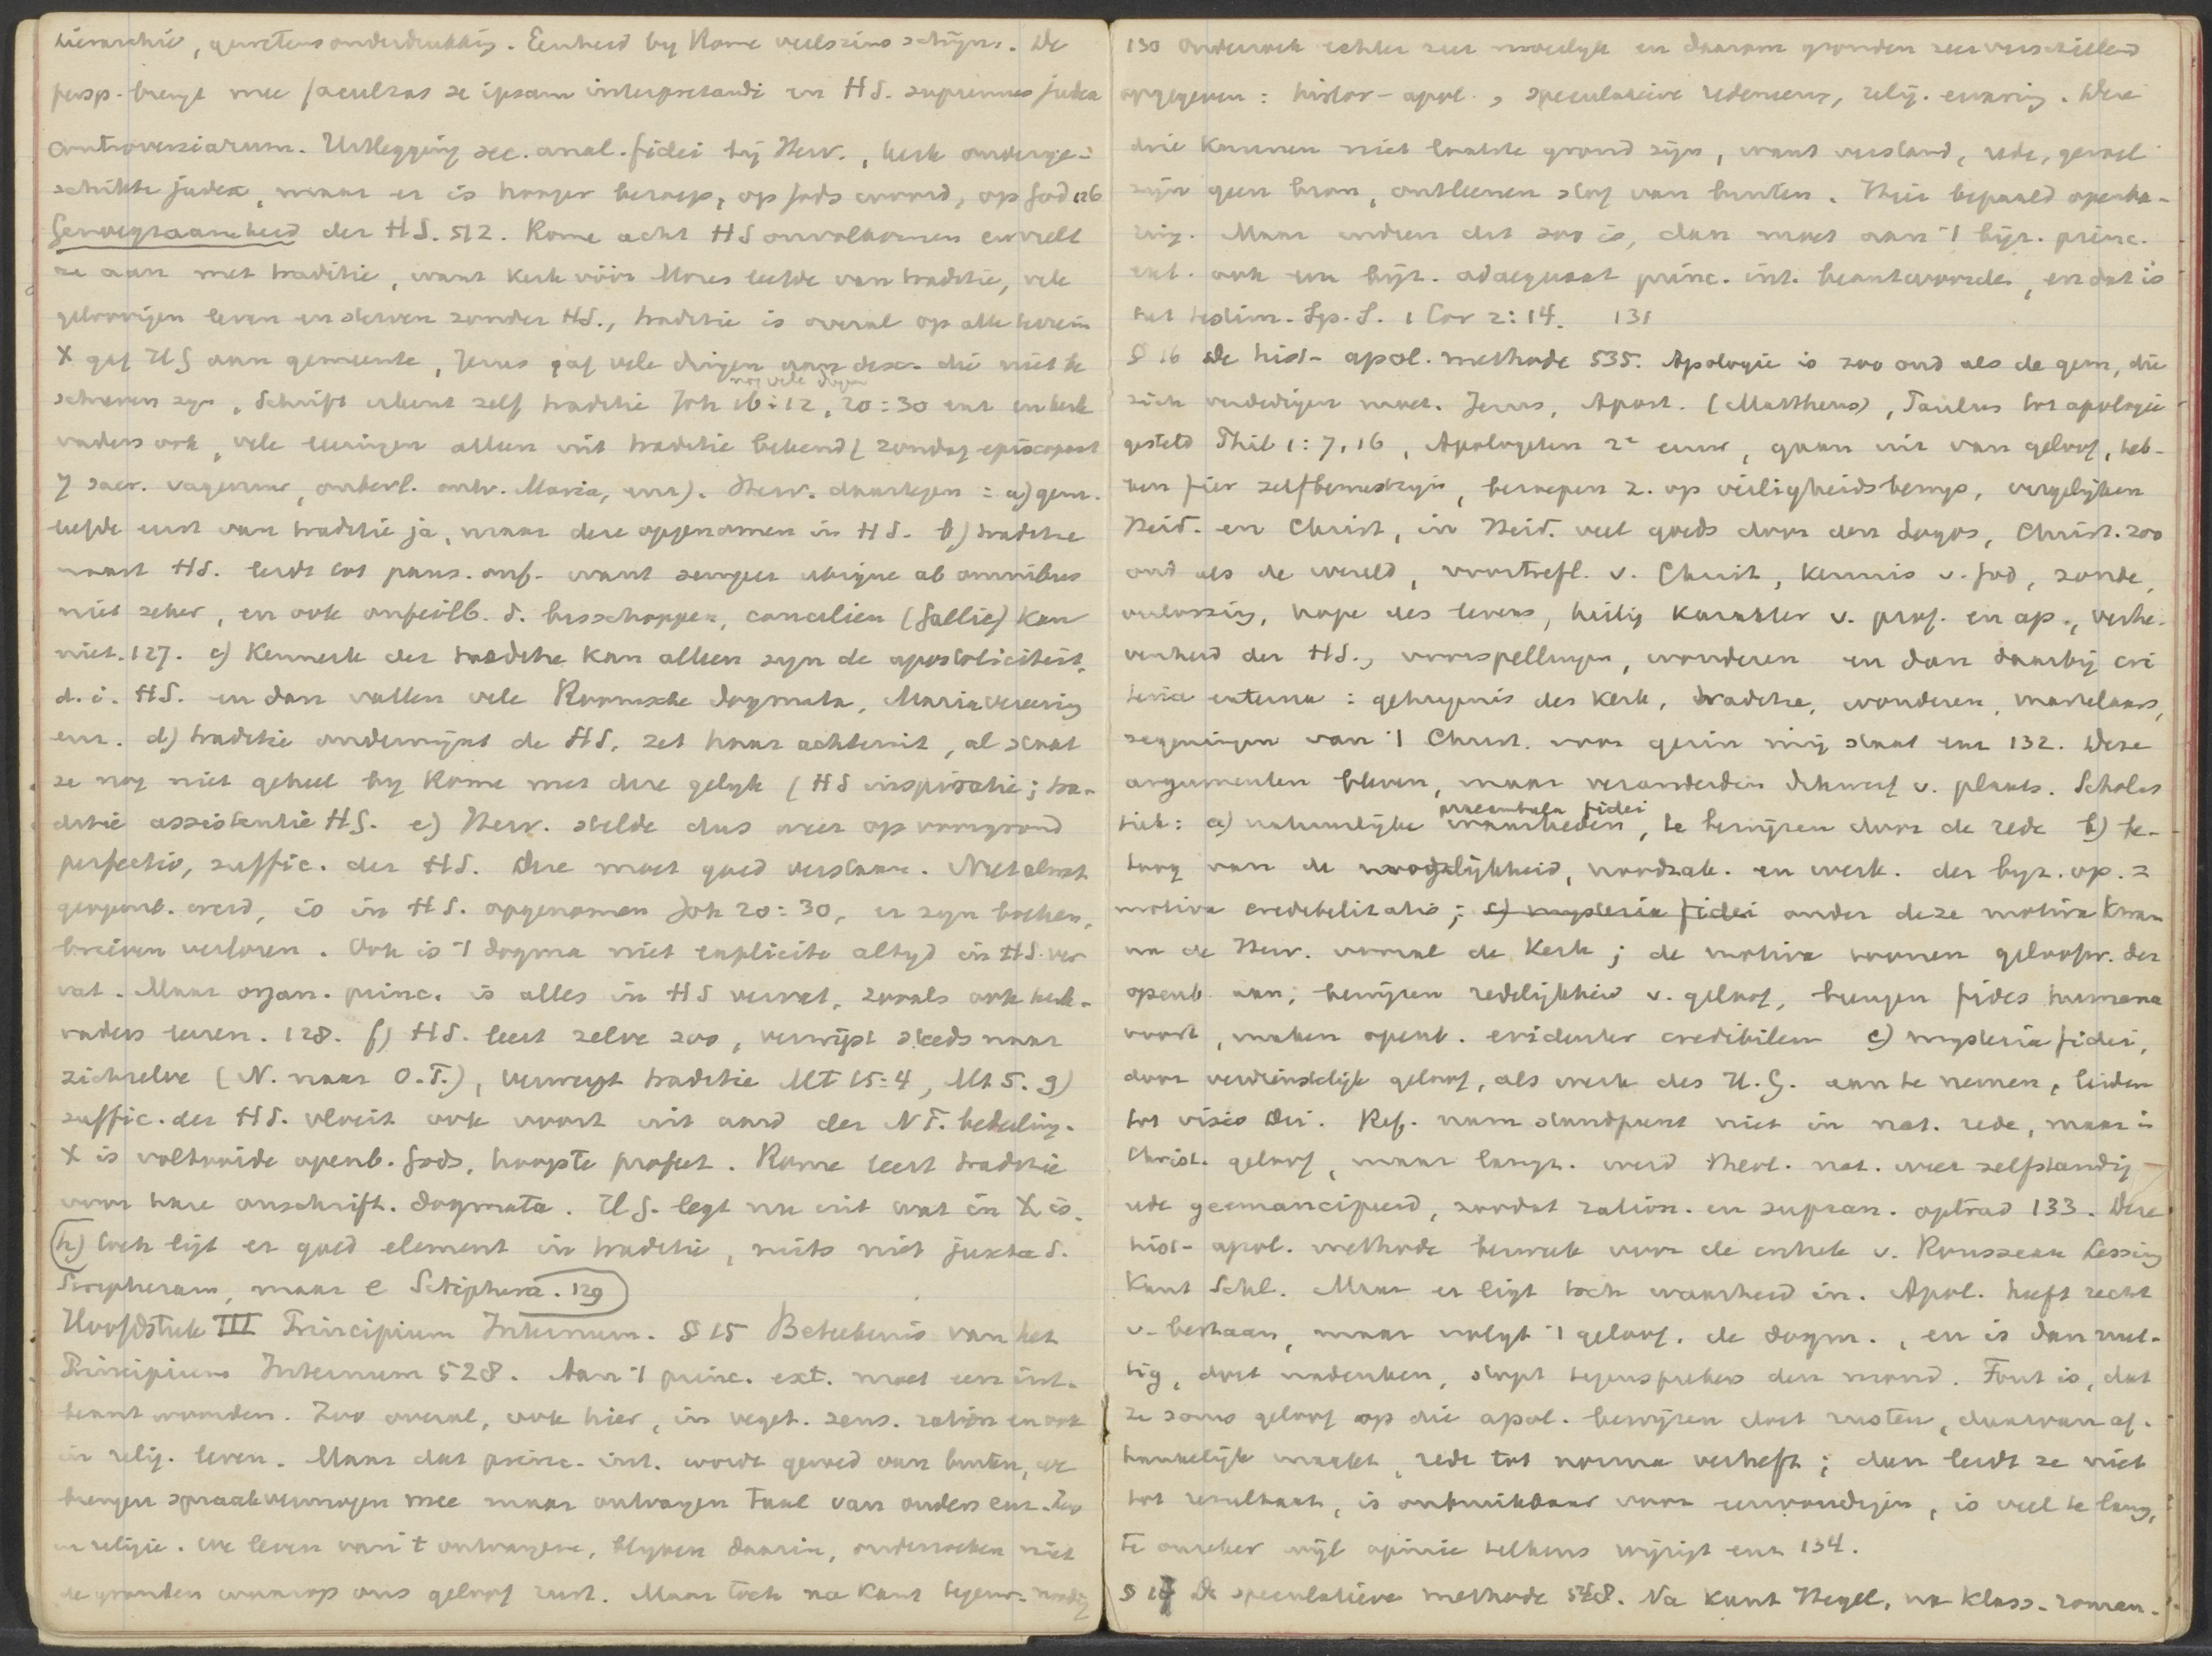 hierarchie, gewetensonderdrukking. Eenheid by Rome veelszins schijn. De
persp. brengt mee facultas se ipsam interpretandi en HS. supremus judex
controversiarum. Uitlegging sec. anal. fidei bij Herv., kerk onderge-
schikte judex, maar er is hooger beroep, op Gods woord, op God 126
Genoegzaamheid der HS. 512. Rome acht HS onvolkomen en vult
ze aan met traditie, want kerk vóór Mozes leefde van traditie, vele
geloovigen leven en sterven zonder HS., traditie is overal op alle terrein
X gaf HG aan gemeente, Jezus gaf vele dingen aan disc. die niet be
nog vele dingen
schreven zyn, Schrift erkent zelf traditie Joh 16:12, 20:30 enz en kerk
vaders ook, vele leeringen alleen uit traditie bekend (zondag episcopaat
7 sacr. vagevuur, onbevl. ontv. Maria, enz). Herv. daartegen: a) gem.
leefde eerst van traditie ja, maar deze opgenomen in HS. b) traditie
naast HS. leidt tot paus. onf. want semper ubique ab omnibus
niet zeker, en ook onfeilb. d. bisschoppen, conciliën (Gallië) kan
niet. 127. c) Kenmerk der traditie kan alleen zyn de apostoliciteit,
d.i. HS. en dan vallen vele Roomsche dogmata, Mariavereering
enz. d) traditie ondermijnt de HS. zet haar achteruit, al staat
ze nog niet geheel by Rome met deze gelyk (HS inspiratie; tra-
ditie assistentie HG. e) Herv. stelde dus weer op voorgrond
perfectio, suffic. der HS. Deze moet goed verstaan. Niet al wat
geopenb. werd, is in HS. opgenomen Joh 20:30, er zyn boeken,
brieven verloren. Ook is 't dogma niet explicite altyd in HS. ver
vat. Maar organ. princ. is alles in HS vervat, zooals ook kerk-
vaders leeren. 128. f) HS. leert zelve zoo, verwijst steeds naar
zichzelve (N. naar O.T.), verwerpt traditie Mt 15:4, Mt 5. g)
suffic. der HS. vloeit ook voort uit aard der NT. bedeeling.
X is voltooide openb. Gods, hoogste profeet. Rome leert traditie
voor hare onschrift. dogmata. HG. legt nu uit wat in X is.
h) toch ligt er goed element in traditie, mits niet juxta S.
Scripturam, maar e Scriptura. 129
Hoofdstuk III Principium Internum. § 15 Beteekenis van het
Principium Internum 528. Aan 't princ. ext. moet een int.
beantwoorden. Zoo overal, ook hier, in veget. sens. ration en ook
in relig. leven. Maar dat princ. int. wordt gevoed van buiten, we
brengen spraakvermogen mee maar ontvangen taal van ouders enz. Zoo
in religie. We leven van 't ontvangene, blyven daarin, onderzoeken niet
de gronden waarop ons geloof rust. Maar toch na Kant tegenw. noodig
130 onderzoek echter zeer moeilyk en daarom gronden zeer verschillend
opgegeven: histor-apol., speculatieve redeneer., relig. ervaring. Deze
drie kunnen niet laatste grond zijn, want verstand, rede, gevoel
zijn geen bron, ontleenen stof van buiten. Hier bepaald openba-
ring. Maar indien dit zoo is, dan moet aan 't bijz. princ.
ext. ook een bijz. adaequaat princ. int. beantwoorden, en dat is
het testim. Sp. S. 1 Cor 2:14. 131
§ 16 De hist-apol. methode 535. Apologie is zoo oud als de gem, die
zich verdedigen moet. Jezus, Apost. (Mattheus), Paulus tot apologie
gesteld Phil 1:7, 16, Apologeten 2e eeuw, gaan uit van geloof, heb-
ben fier zelfbewustzyn, beroepen z. op veiligheidsbewys, vergelyken
Heid. en Christ, in Heid. veel goeds door den Logos, Christ. zoo
oud als de wereld, voortrefl. v. Christ, kennis v. God, zonde,
verlossing, hope des levens, heilig karakter v. prof. en ap., verhe-
venheid der HS., voorspellingen, wonderen en dan daarbij cri
teria externa: getuigenis der kerk, traditie, wonderen, martelaars,
zegeningen van 't Christ. voor gezin mij staat enz 132. Deze
argumenten bleven, maar veranderden dikwerf v. plaats. Scholas
praeambula fidei
tiek: a) natuurlijke waarheden, te bewijzen door de rede b) be-
toog van de mogelijkheid, noodzak. en werk. der byz. op. =
motiva credibilitatis; c) mysteria fidei onder deze motiva kwam
na de Herv. vooral de Kerk; de motiva toonen geloofw. der
openb. aan, bewijzen redelijkheid v. geloof, brengen fides humana
voort, maken openb. evidenter credibilem c) mysteria fidei,
door verdienstelijk geloof, als werk des H.G. aan te nemen, leiden
tot visio Dei. Ref. nam standpunt niet in nat. rede, maar in
Christ. geloof, maar langz. werd theol. nat. weer zelfstandig
rede geemancipeerd, zoodat ration. en supran. optrad 133. Deze
hist-apol. methode bezweek voor de critiek v. Rousseau Lessing
Kant Schl. Maar er ligt toch waarheid in. Apol. heeft recht
v. bestaan, maar volgt 't geloof. de dogm., en is dan nut-
tig, doet nadenken, stopt tegensprekers den mond. Fout is, dat
ze soms geloof op die apol. bewijzen doet rusten, daarvan af-
hankelijk maakt, rede tot norma verheft; dan leidt ze niet
tot resultaat, is onbruikbaar voor eenvoudigen, is veel te lang,
te onzeker wijl opinie telkens wijzigt enz 134.
§ 17 De speculatieve methode 548. Na Kant Hegel, na klass-roman-